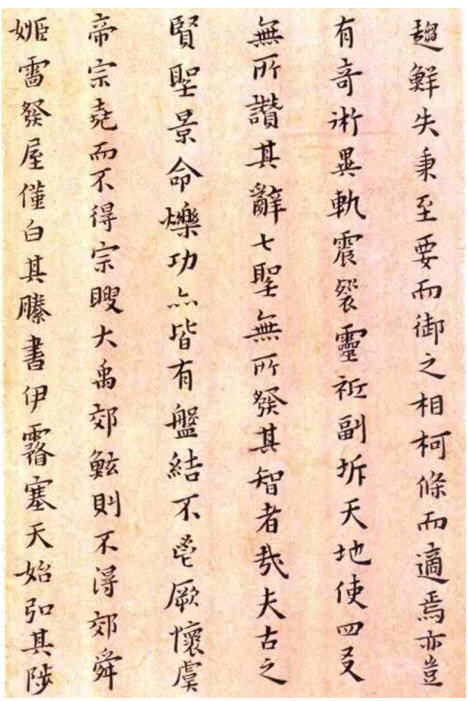 趨鮮失秉至要而御之相柯條而適焉亦豈
有奇術異軌震裂靈祇副坼天地使四㕛
無所讚其辭七聖無所發其智者哉夫古之
賢聖景命爍功亦皆有盤結不鬯厥懷虞
帝宗堯而不得宗瞍大禹郊鮌則不得郊舜
姬雷發屋僅白其縢書伊霧塞天始弘其陟